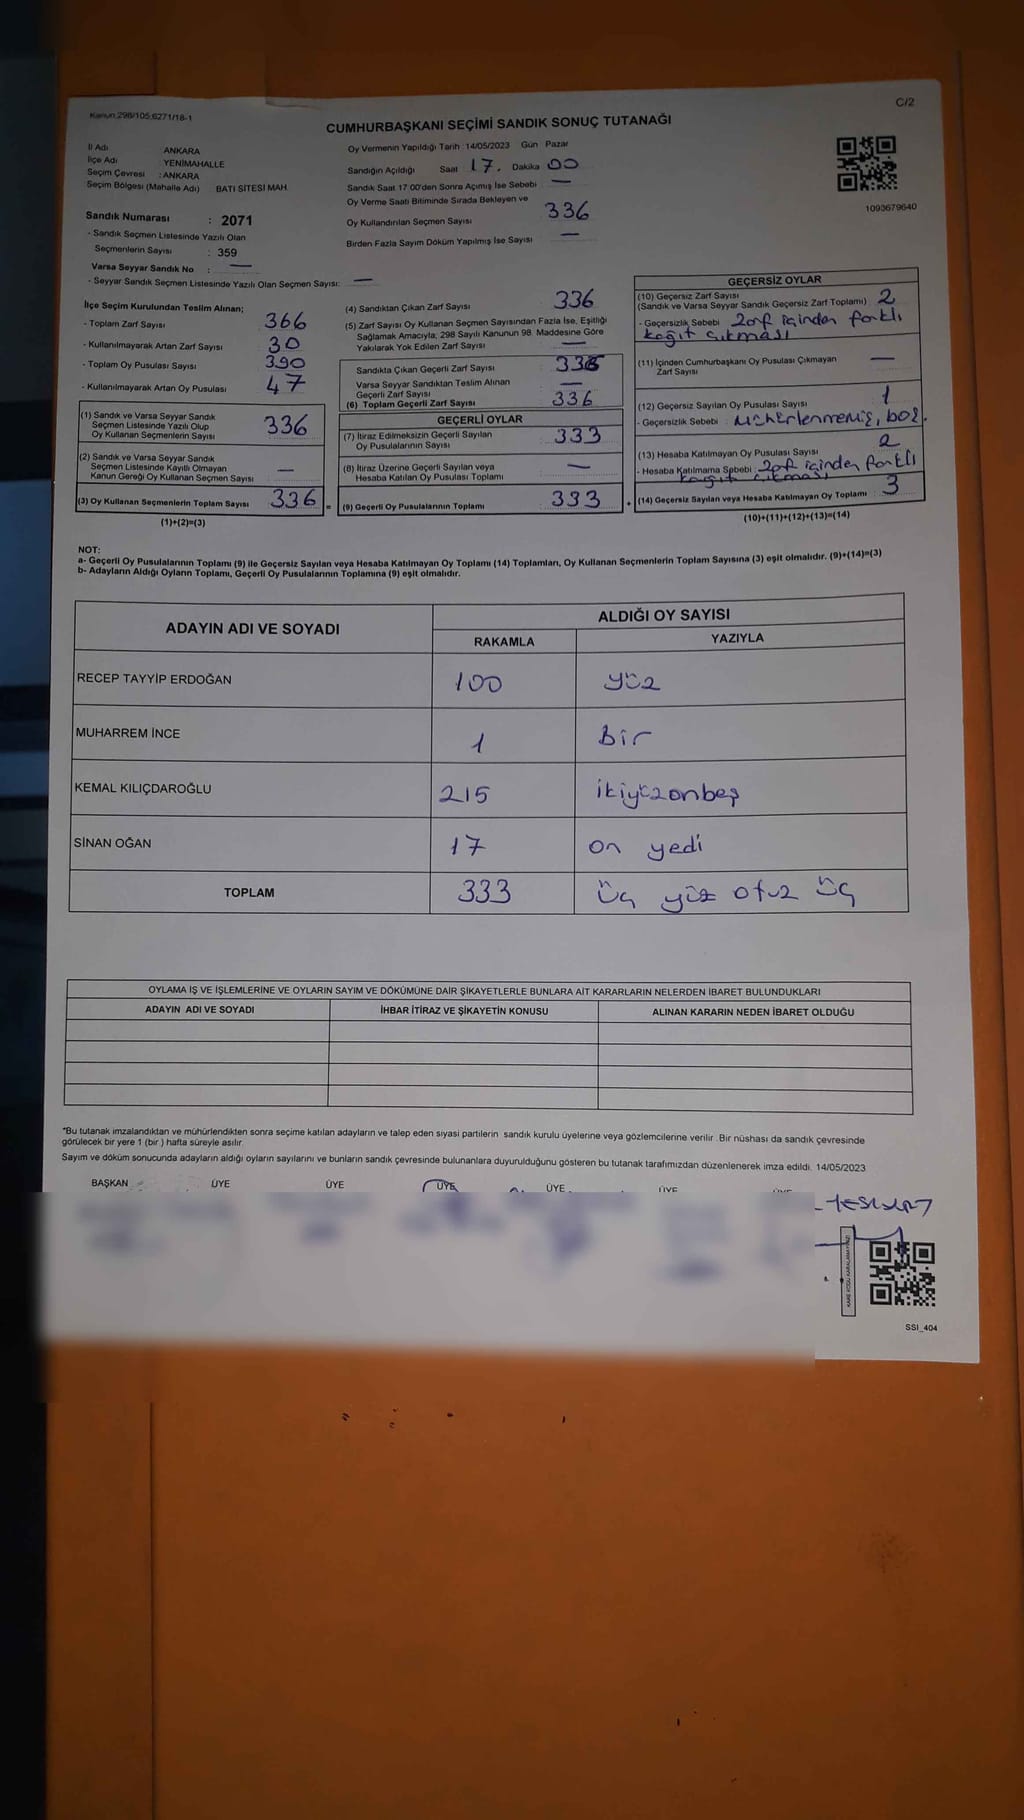 Kanun 298/105:6271/18-1
C/2
CUMHURBAŞKANI SEÇİMİ SANDIK SONUÇ TUTANAĞI
İl Adı ANKARA
İlçe Adı YENİMAHALLE
Seçim Çevresi : ANKARA
Seçim Bölgesi (Mahalle Adı) BATI SİTESİ MAH.
Sandık Numarası : 2071
- Sandık Seçmen Listesinde Yazılı Olan
Seçmenlerin Sayısı : 359
Varsa Seyyar Sandık No : —
- Seyyar Sandık Seçmen Listesinde Yazılı Olan Seçmen Sayısı: —
Oy Vermenin Yapıldığı Tarih :14/05/2023 Gün Pazar
Sandığın Açıldığı Saat 17. Dakika 00
Sandık Saat 17:00'den Sonra Açımış İse Sebebi —
Oy Verme Saati Bitiminde Sırada Bekleyen ve
Oy Kullandırılan Seçmen Sayısı 336
Birden Fazla Sayım Döküm Yapılmış İse Sayısı —
1093679640
İlçe Seçim Kurulundan Teslim Alınan;
- Toplam Zarf Sayısı 366
- Kullanılmayarak Artan Zarf Sayısı 30
- Toplam Oy Pusulası Sayısı 390
- Kullanılmayarak Artan Oy Pusulası 47
(1) Sandık ve Varsa Seyyar Sandık
Seçmen Listesinde Yazılı Olup
Oy Kullanan Seçmenlerin Sayısı 336
(2) Sandık ve Varsa Seyyar Sandık
Seçmen Listesinde Kayıtlı Olmayan
Kanun Gereği Oy Kullanan Seçmen Sayısı —
(3) Oy Kullanan Seçmenlerin Toplam Sayısı 336 =
(1)+(2)=(3)
(4) Sandıktan Çıkan Zarf Sayısı 336
(5) Zarf Sayısı Oy Kullanan Seçmen Sayısından Fazla İse, Eşitliği
Sağlamak Amacıyla, 298 Sayılı Kanunun 98. Maddesine Göre
Yakılarak Yok Edilen Zarf Sayısı —
Sandıkta Çıkan Geçerli Zarf Sayısı 336
Varsa Seyyar Sandıktan Teslim Alınan
Geçerli Zarf Sayısı —
(6) Toplam Geçerli Zarf Sayısı 336
GEÇERLİ OYLAR
(7) İtiraz Edilmeksizin Geçerli Sayılan
Oy Pusulalarının Sayısı 333
(8) İtiraz Üzerine Geçerli Sayılan veya
Hesaba Katılan Oy Pusulası Toplamı —
(9) Geçerli Oy Pusulalarının Toplamı 333 +
GEÇERSİZ OYLAR
(10) Geçersiz Zarf Sayısı 2
(Sandık ve Varsa Seyyar Sandık Geçersiz Zarf Toplamı)
- Geçersizlik Sebebi zarf içinden farklı
kağıt çıkması
(11) İçinden Cumhurbaşkanı Oy Pusulası Çıkmayan
Zarf Sayısı —
(12) Geçersiz Sayılan Oy Pusulası Sayısı 1
- Geçersizlik Sebebi : Mühürlenmemiş, boş.
(13) Hesaba Katılmayan Oy Pusulası Sayısı 2
- Hesaba Katılmama Sebebi : zarf içinden farklı
kağıt çıkması
(14) Geçersiz Sayılan veya Hesaba Katılmayan Oy Toplamı : 3
(10)+(11)+(12)+(13)=(14)
NOT:
a- Geçerli Oy Pusulalarının Toplamı (9) ile Geçersiz Sayılan veya Hesaba Katılmayan Oy Toplamı (14) Toplamları, Oy Kullanan Seçmenlerin Toplam Sayısına (3) eşit olmalıdır. (9)+(14)=(3)
b- Adayların Aldığı Oyların Toplamı, Geçerli Oy Pusulalarının Toplamına (9) eşit olmalıdır.
ADAYIN ADI VE SOYADI
ALDIĞI OY SAYISI
RAKAMLA YAZIYLA
RECEP TAYYİP ERDOĞAN 100 yüz
MUHARREM İNCE 1 bir
KEMAL KILIÇDAROĞLU 215 ikiyüzonbeş
SİNAN OĞAN 17 on yedi
TOPLAM 333 üç yüz otuz üç
OYLAMA İŞ VE İŞLEMLERİNE VE OYLARIN SAYIM VE DÖKÜMÜNE DAİR ŞİKAYETLERLE BUNLARA AİT KARARLARIN NELERDEN İBARET BULUNDUKLARI
ADAYIN ADI VE SOYADI İHBAR İTİRAZ VE ŞİKAYETİN KONUSU ALINAN KARARIN NEDEN İBARET OLDUĞU
*Bu tutanak imzalandıktan ve mühürlendikten sonra seçime katılan adayların ve talep eden siyasi partilerin sandık kurulu üyelerine veya gözlemcilerine verilir. Bir nüshası da sandık çevresinde
görülecek bir yere 1 (bir ) hafta süreyle asılır.
Sayım ve döküm sonucunda adayların aldığı oyların sayılarını ve bunların sandık çevresinde bulunanlara duyurulduğunu gösteren bu tutanak tarafımızdan düzenlenerek imza edildi. 14/05/2023
BAŞKAN ÜYE ÜYE ÜYE ÜYE ÜYE ÜYE
SSİ_404